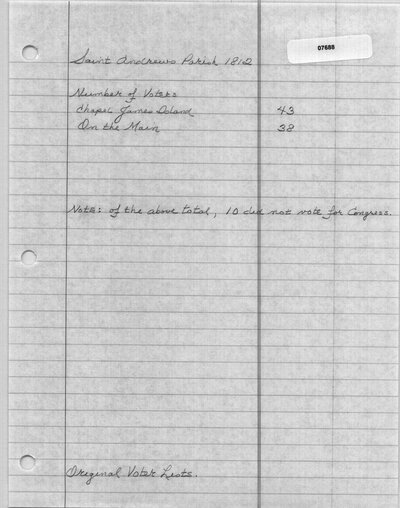 07688
Saint Andrews Parish 1812
Number of Voters
Chapel James Island 43
On the Main 38
Note: of the above total, 10 did not vote for Congress.
Original Voter Lists.